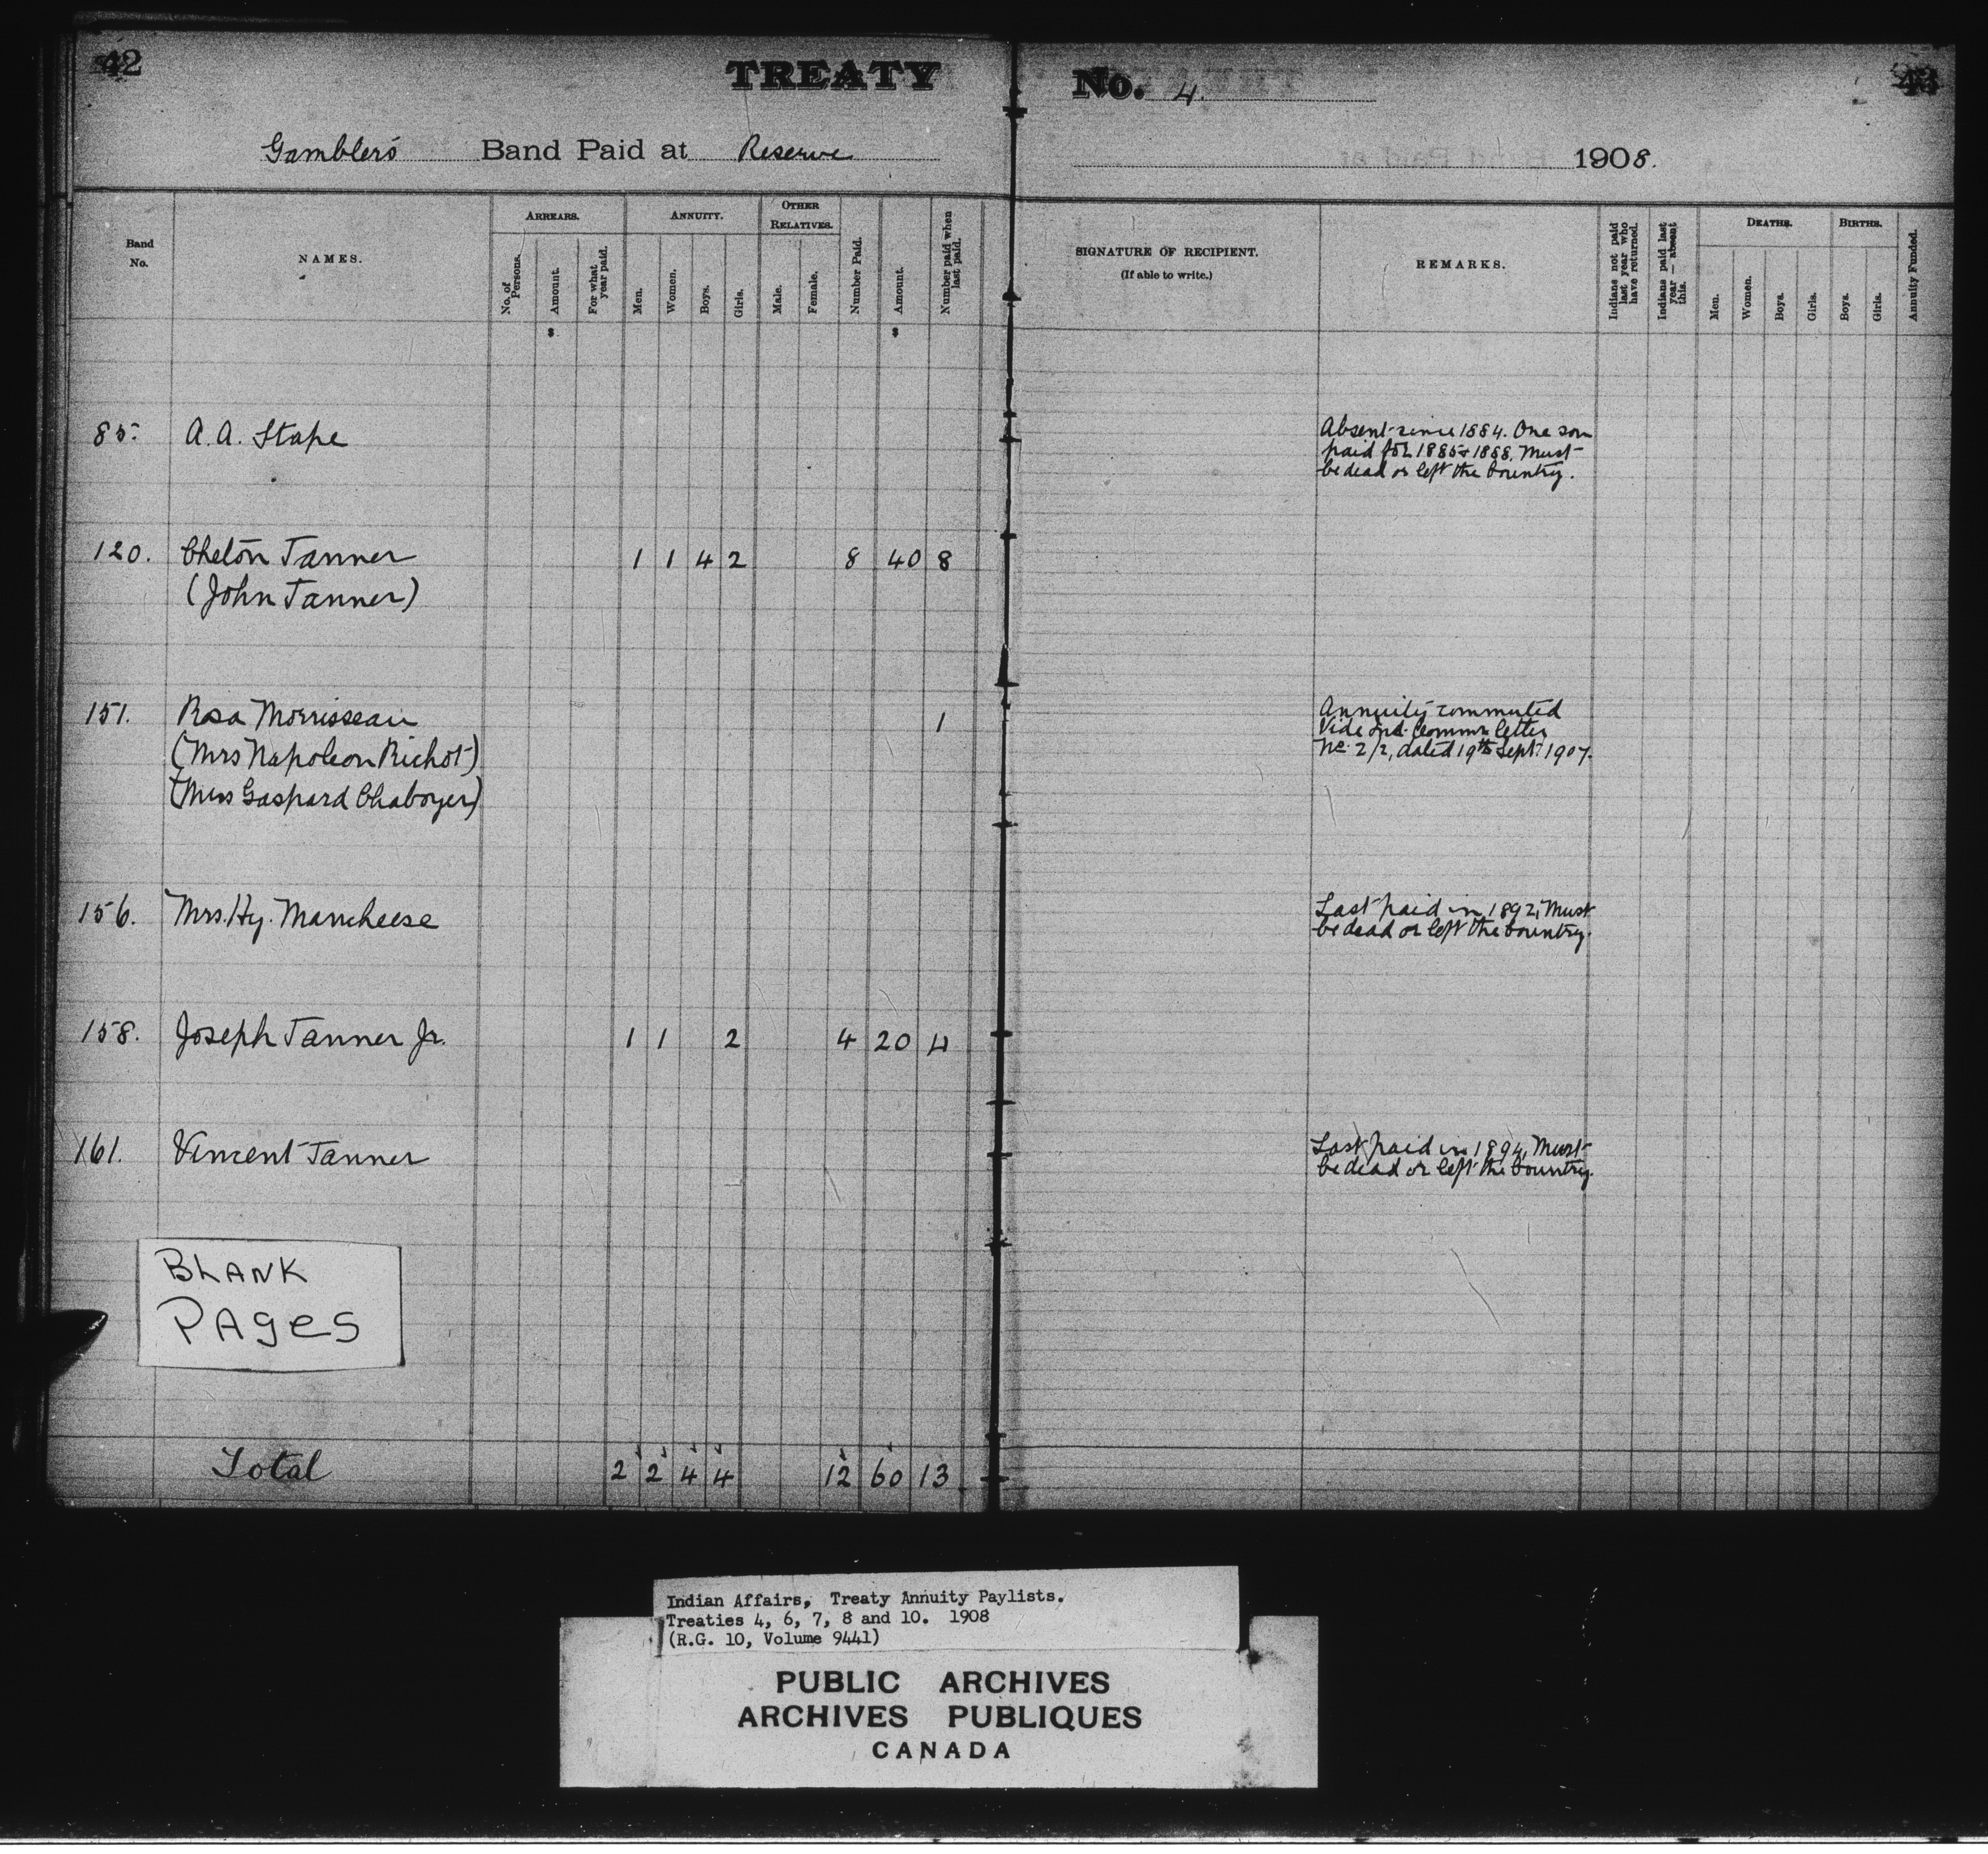 42
TREATY
No. 4.
43
Gambler's Band Paid at Reserve
1908.
Band No.
NAMES.
ARREARS.
No. of Persons.
Amount.
For what year paid.
ANNUITY.
Men.
Women.
Boys.
Girls.
OTHER RELATIVES.
Male.
Female.
Number Paid.
Amount.
Number paid when last paid.
SIGNATURE OF RECIPIENT.
(If able to write.)
REMARKS.
Indians not paid last year who have returned.
Indians paid last year — absent this.
DEATHS.
Men.
Women.
Boys.
Girls.
BIRTHS.
Boys.
Girls.
Annuity Funded.
$ $
85. A. A. Stape
Absent since 1884. One son
paid for 1885 & 1888. Must
be dead or left the Country.
120. Cheton Tanner 1 1 4 2 8 40 8
(John Tanner)
151. Rosa Morrisseau 1
(Mrs Napoleon Richot)
(Mrs Gaspard Chaboyer)
Annuity commuted
Vide Ind. Commr letter
No. 2/2, dated 19th Sept. 1907.
156. Mrs. Hy. Mancheese
Last paid in 1892, Must
be dead or left the Country.
158. Joseph Tanner Jr. 1 1 2 4 20 4
161. Vincent Tanner
Last paid in 1894, Must
be dead or left the Country.
BLANK
PAges
Total 2 2 4 4 12 60 13
Indian Affairs, Treaty Annuity Paylists.
Treaties 4, 6, 7, 8 and 10. 1908
(R.G. 10, Volume 9441)
PUBLIC ARCHIVES
ARCHIVES PUBLIQUES
CANADA